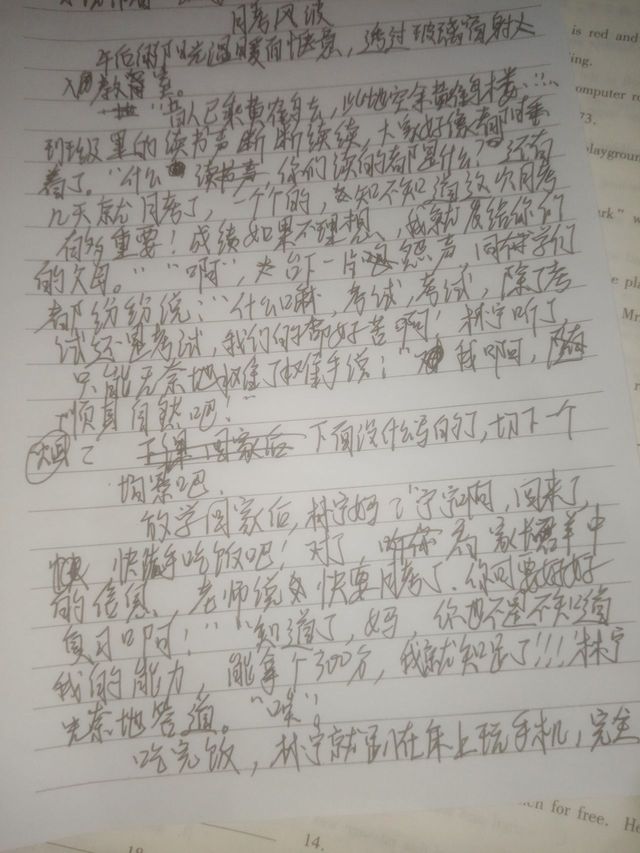 月考风波
午后的阳光温暖而惬意，透过玻璃窗射火
入教室里。
"昔人已乘黄鹤去，此地空余黄鹤楼……
班级里的读书声断断续续，大家好像都睡
着了。"什么读书声，你们读的都是什么？还有
几天就月考了，一个个的，知不知道这次月考
有多重要！成绩如果不理想，我就发给你们
的父母。""啊"，台下一片怨声，同学们
都纷纷说："什么嘛，考试，考试，除了考
试还是考试，我们的都好苦啊！林宁听了，
只能无奈地摆了摆手说："我啊，
顺其自然吧。"
下课 回家后 下面没什么写的了，切下一个
档案吧
放学回家后，林宁妈："宁宁啊，回来了，
快 快洗手吃饭吧！对了，家长群中
的信息，老师说快要月考了，你可要好好
复习啊！""知道了，妈，你也不是不知道
我的能力，能拿个300分，我就知足了!!!林宁
无奈地答道。"唉"
吃完饭，林宁就趴在床上玩手机，完全
is red and
ing.
computer ro
73.
playground
ark" w
e pla
Mr
en for free. He
14.